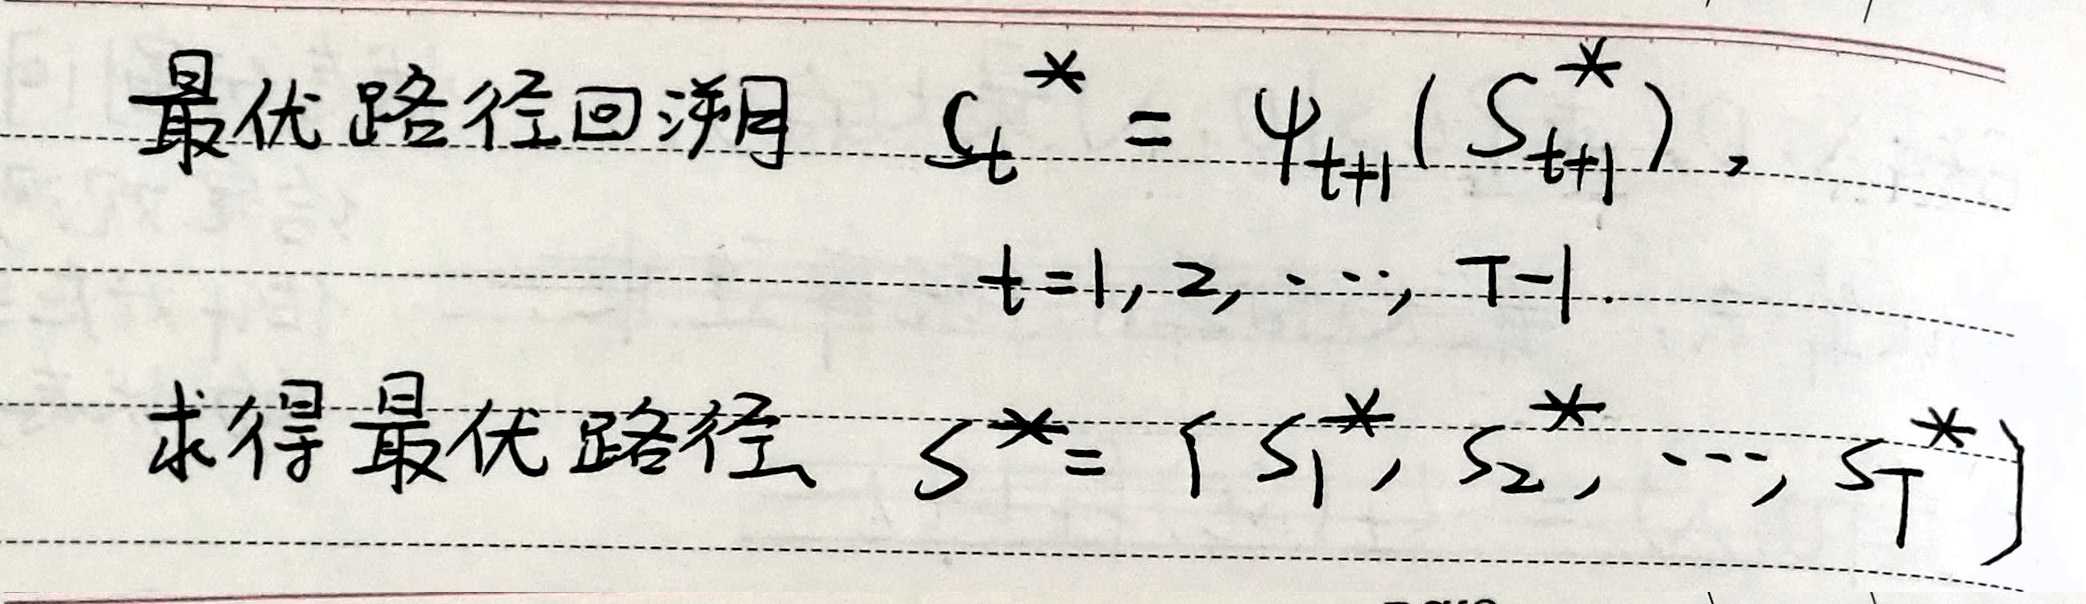 最优路径回溯 $S_t^* = \psi_{t+1}(S_{t+1}^*)$,
$t=1, 2, \cdots, T-1.$
求得最优路径 $S^* = \{S_1^*, S_2^*, \cdots, S_T^*\}$